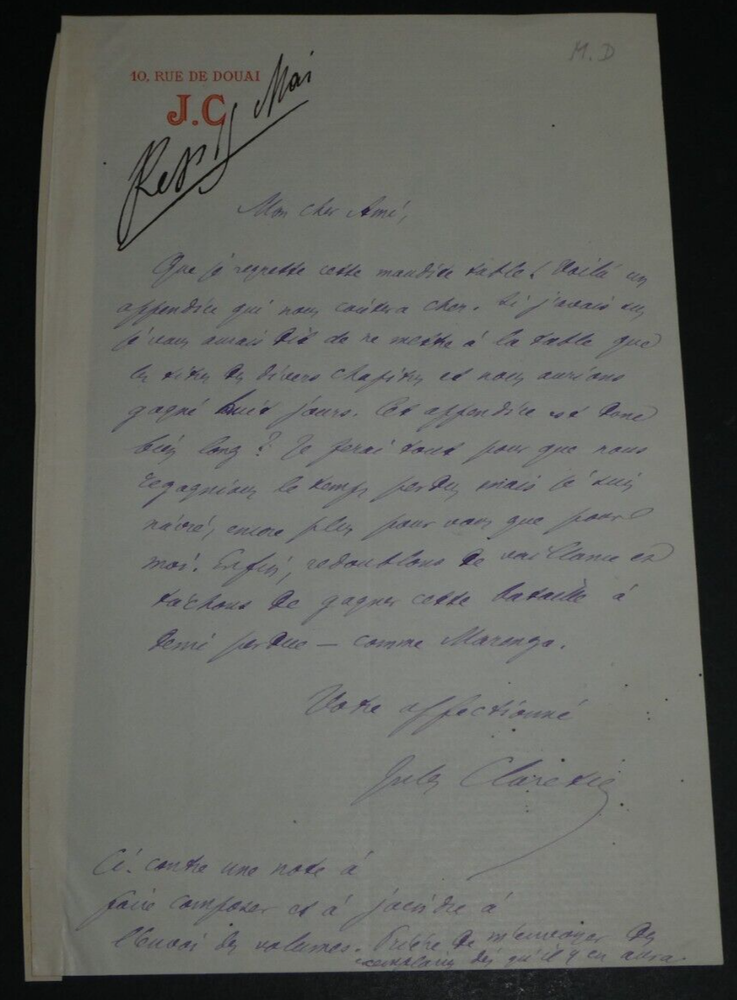 M. D
10, RUE DE DOUAI
J.C
Rep 15 Mai
Mon cher Ami,
Que je regrette cette maudite table ! Voilà un
appendice qui nous coûtera cher. Si j'avais su,
je vous aurais dit de ne mettre à la table que
les titres des divers chapitres et nous aurions
gagné huit jours. Cet appendice est donc
bien long ? Je ferai tout pour que nous
regagnions le temps perdu mais je suis
navré, encore plus pour vous que pour
moi. Enfin, redoublons de vaillance et
tâchons de gagner cette bataille à
demi perdue — comme Marengo.
Votre affectionné
Jules Claretie
Ci-contre une note à
faire composer et à joindre à
l'envoi des volumes. Prière de m'envoyer des
exemplaires dès qu'il y en aura.